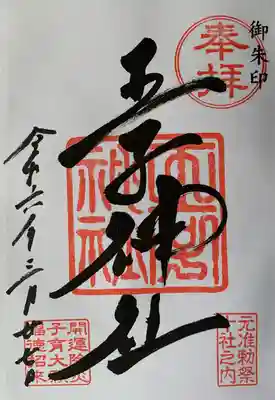 御朱印
奉拝
王子神社
王子神社
令和六年三月廿七日
元准勅祭
十社之内
開運除災
子育大願
福徳招来